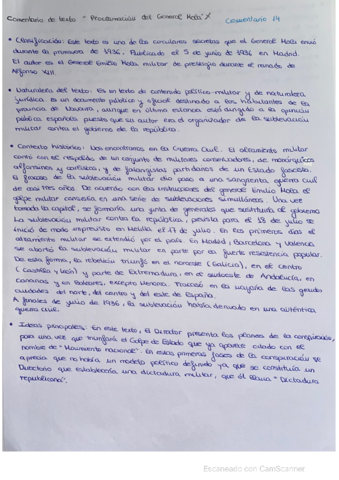 Comentario de texto "Proclamación del General Mola"
Comentario 14
• Clasificación: Este texto es una de las circulares secretas que el General Mola envió
durante la primavera de 1936. Publicado el 5 de junio de 1936 en Madrid.
El autor es el General Emilio Mola militar de prestigio durante el reinado de
Alfonso XIII.
• Naturaleza del texto: Es un texto de contenido político-militar y de naturaleza
jurídica. Es un documento público y oficial destinado a los habitantes de la
provincia de Navarra, aunque en última estancia está dirigido a la opinión
pública española puesto que su autor era el organizador de la sublevación
militar contra el gobierno de la república.
• Contexto histórico: Nos encontramos en la Guerra Civil. El alzamiento militar
contó con el respaldo de un conjunto de militares conservadores, de monárquicos
alfonsinos y carlistas, y de falangistas partidarios de un Estado fascista.
El fracaso de la sublevación militar dio paso a una sangrienta guerra civil
de casi tres años. De acuerdo con las instrucciones del general Emilio Mola el
golpe militar consistía en una serie de sublevaciones simultáneas. Una vez
tomada la capital, se formaría una junta de generales que sustituiría al gobierno
La sublevación militar contra la república, prevista para el 18 de julio se
inició de modo imprevisto en Melilla el 17 de julio. En los primeros días el
alzamiento militar se extendió por el país. En Madrid, Barcelona y Valencia
se abortó la sublevación militar en parte por la fuerte resistencia popular.
De esta forma, la rebelión triunfó en el noroeste (Galicia), en el centro
(Castilla y León) y parte de Extremadura, en el sudoeste de Andalucía, en
Canarias y en Baleares, excepto Menorca. Fracasó en la mayoría de las grandes
ciudades del norte, del centro y del este de España.
A finales de julio de 1936, la sublevación había derivado en una auténtica
guerra civil.
• Ideas principales: En este texto, el Director presenta los planes de la conspiración,
para una vez que triunfará el Golpe de Estado que ya aparece citado con el
nombre de "Movimiento nacional". En estas primeras fases de la conspiración se
aprecia que no había un modelo político definido ya que se constituía un
Directorio que establecería una dictadura militar, que él llama "Dictadura
republicana".
Escaneado con CamScanner